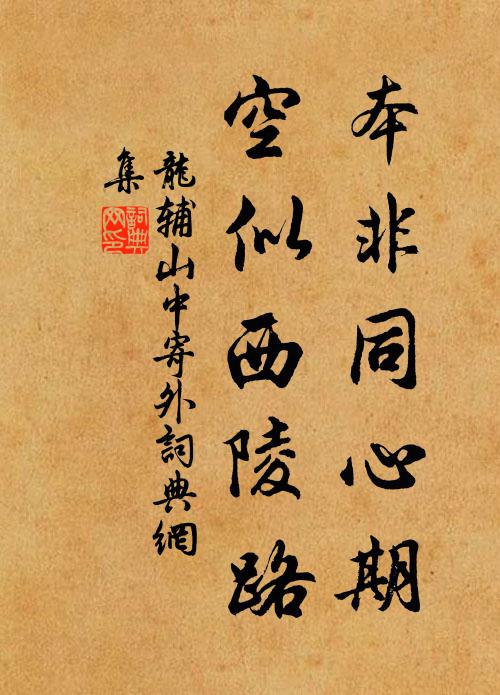 本非同心期
空似西陵路
龍辅山中寄外詞典網
集
詞典
网印